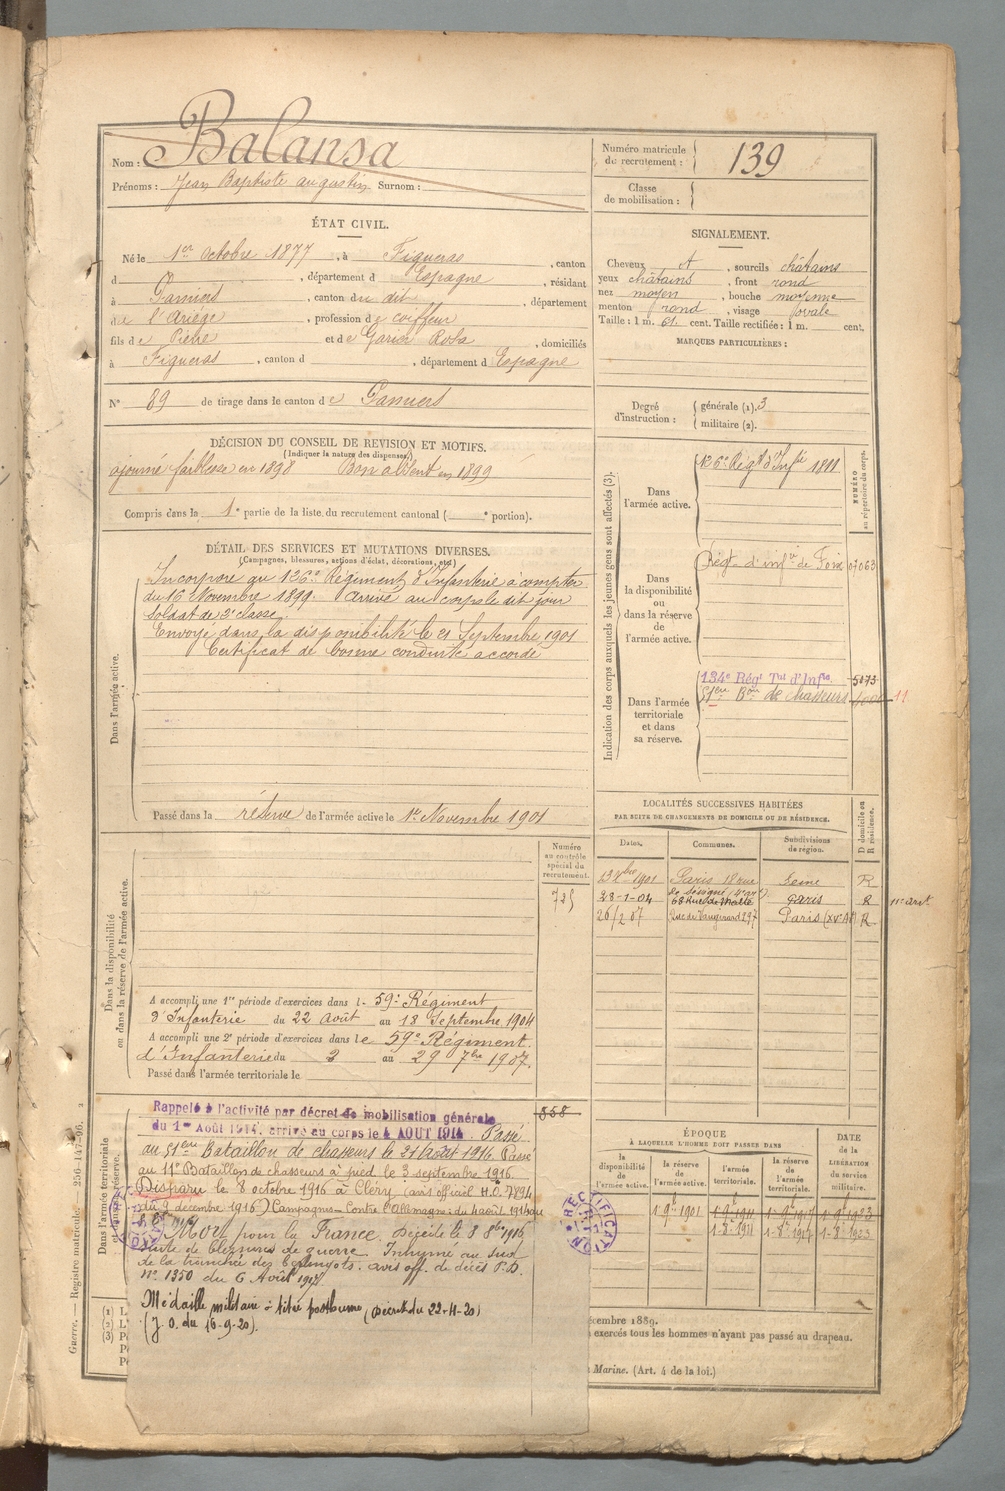 Nom : Balansa
Prénoms : Jean Baptiste augustin Surnom :
Numéro matricule
de recrutement : 139
Classe
de mobilisation :
ÉTAT CIVIL.
Né le 1er Octobre 1877, à Figueras, canton
d , département d Espagne, résidant
à Pamiers, canton du dit, département
de l'Ariége, profession de coiffeur
fils de Pierre et de Garica Rosa, domiciliés
à Figueras, canton d , département d Espagne
N° 89 de tirage dans le canton de Pamiers
SIGNALEMENT.
Cheveux , sourcils châtains
yeux châtains, front rond
nez moyen, bouche moyenne
menton rond, visage ovale
Taille : 1 m. 61 cent. Taille rectifiée : 1 m. cent.
MARQUES PARTICULIÈRES :
Degré
d'instruction :
générale (1). 3
militaire (2).
DÉCISION DU CONSEIL DE REVISION ET MOTIFS.
(Indiquer la nature des dispenses.)
ajourné faiblesse en 1898 Bon absent en 1899
Compris dans la 1e partie de la liste du recrutement cantonal ( e portion).
DÉTAIL DES SERVICES ET MUTATIONS DIVERSES.
(Campagnes, blessures, actions d'éclat, décorations, etc.)
Dans l'armée active.
Incorporé au 126e Régiment d'Infanterie à compter
du 16 Novembre 1899. Arrivé au corps le dit jour
soldat de 2e classe.
Envoyé dans la disponibilité le 21 Septembre 1901
Certificat de bonne conduite accordé
Passé dans la réserve de l'armée active le 1er Novembre 1901
Indication des corps auxquels les jeunes gens sont affectés (3).
NUMÉRO
au répertoire du corps.
Dans
l'armée active.
126e Régt d'Infie
Dans
la disponibilité
ou
dans la réserve
de
l'armée active.
Régt d'infie de Foix
Dans l'armée
territoriale
et dans
sa réserve.
134e Régt Tal d'Infie. 5173
51eme Bon de chasseurs 11
LOCALITÉS SUCCESSIVES HABITÉES
PAR SUITE DE CHANGEMENTS DE DOMICILE OU DE RÉSIDENCE.
Dates. Communes. Subdivisions de région. D domicile ou R résidence.
1901 Paris 18 rue Seine R
28-1-04 68 Rue de Malte Paris R 11e arrt
26/2 07 Rue de Vaugirard 297 Paris (XVe Ar) R
Dans la disponibilité
ou dans la réserve de l'armée active.
Numéro
au contrôle
spécial du
recrutement.
725
A accompli une 1re période d'exercices dans le 59e Régiment
d'Infanterie du 22 Août au 18 Septembre 1904
A accompli une 2e période d'exercices dans le 59e Régiment
d'Infanterie du 2 au 29 7bre 1907.
Passé dans l'armée territoriale le
Dans l'armée territoriale
et dans sa réserve.
858
Rappelé à l'activité par décret de mobilisation générale
du 1er Août 1914, arrivé au corps le 4 AOUT 1914. Passé
au 51eme Bataillon de chasseurs le 21 Août 1916. Passé
au 11e Bataillon de chasseurs à pied le 3 septembre 1916.
Disparu le 8 octobre 1916 à Cléry (avis officiel H.O. 7894
du 9 décembre 1916) Campagnes Contre l'Allemagne du 4 août 1914 au
Mort pour la France. Décédé le 8 8bre 1916
suite de blessures de guerre. Inhumé au sud
de la tranchée des avis off. de décès
no 1350 du 6 Août 1917
Médaille militaire à titre posthume (Décret du 22-4-20)
(J. O. du 16-9-20).
RECTIFICATION
RECTIFICATION
ÉPOQUE
À LAQUELLE L'HOMME DOIT PASSER DANS
DATE
de la
LIBÉRATION
du service
militaire.
la
disponibilité
de l'armée active.
la réserve
de
l'armée active.
l'armée
territoriale.
la réserve
de
l'armée
territoriale.
1-9bre-1901 1-9-1911 1-9-1917 1-9-1923
1-8-1911 1-8-1917 1-8-1923
écembre 1889.
exercés tous les hommes n'ayant pas passé au drapeau.
Marine. (Art. 4 de la loi.)
Guerre. — Registre matricule. 256-147-96.